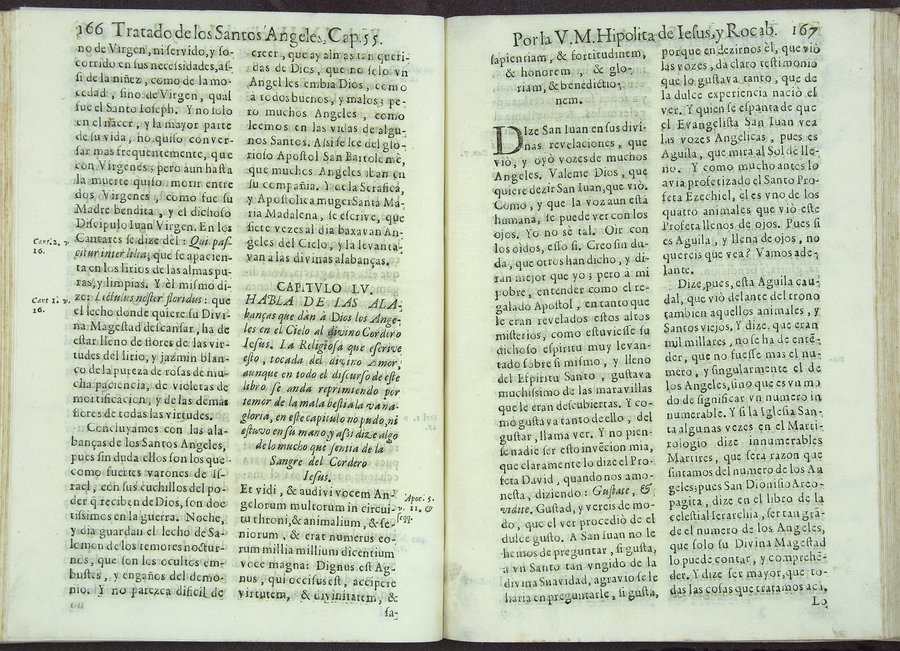 166 Tratado de los Santos Angeles, Cap. 55.
no de Virgen, ni servido, y so-
corrido en sus necessidades, as-
si de la niñez, como de la mo-
cedad, sino de Virgen, qual
fue el Santo Ioseph. Y no solo
en el nacer, y la mayor parte
de su vida, no quiso conver-
sar mas frequentemente, que
con Virgenes; pero aun hasta
la muerte quiso morir entre
dos Virgenes, como fue su
Madre bendita, y el dichoso
Discipulo Iuan Virgen. En los
Cantares se dize dèl: Qui pas-
citur inter lilia, que se apacien-
ta en los lirios de las almas pu-
ras, y limpias. Y el mismo di-
ze: Lectulus noster floridus: que
el lecho donde quiere su Divi-
na Magestad descansar, ha de
estar lleno de flores de las vir-
tudes del lirio, y jazmin blan-
co de la pureza de rosas de mu-
cha paciencia, de violetas de
mortificacion, y de las demas
flores de todas las virtudes.
Concluyamos con las ala-
banças de los Santos Angeles,
pues sin duda ellos son los que
como fuertes varones de Is-
rael, con sus cuchillos del po-
der q reciben de Dios, son doc
tissimos en la guerra. Noche,
y dia guardan el lecho de Sa-
lomon de los temores noctur-
nos, que son los ocultos em-
bustes, y engaños del demo-
nio. Y no parezca dificil de
Cant. 2. v.
16.
Cant 1. v.
16.
creer, que ay almas tan queri-
das de Dios, que no solo vn
Angel les embia Dios, como
à todos buenos, y malos; pe-
ro muchos Angeles, como
leemos en las vidas de algu-
nos Santos. Assi se lee del glo-
rioso Apostol San Bartolomè,
que muchos Angeles iban en
su compañia. Y et la Serafica,
y Apostolica muger Santa Ma-
ria Madalena, se escrive, que
siete vezes al dia baxavan An-
geles del Cielo, y la levanta-
van a las divinas alabanças.
CAPITVLO LV.
HABLA DE LAS ALA-
banças que dàn à Dios los Ange-
les en el Cielo al divino Cordero
Iesus. La Religiosa que escrive
esto, tocada del divino Amor,
aunque en todo el discurso de este
libro se anda reprimiendo por
temor de la mala bestia la vana-
gloria, en este capitulo no pudo, ni
estuvo en su mano, y assi dize algo
de lo mucho que sentia de la
Sangre del Cordero
Iesus.
Et vidi, & audivi vocem An-
gelorum multorum in circui-
tu throni, & animalium, & se-
niorum, & erat numerus eo-
rum millia millium dicentium
voce magna: Dignus est Ag-
nus, qui occisus est, accipere
virtutem, & divinitatem, &
Apoc. 5.
v. 11. &
seqq.
sa-
Por la V. M. Hipolita de Iesus, y Rocab. 167
sapientiam, & fortitudinem,
& honorem, & glo-
riam, & benedictio-
nem.
Dize San Iuan en sus divi-
nas revelaciones, que
viò, y oyò vozes de muchos
Angeles. Valeme Dios, que
quiere dezir San Iuan, que viò.
Como, y que la voz aun està
humana, se puede ver con los
ojos. Yo no sè tal. Oir con
los oidos, esso si. Creo sin du-
da, que otros han dicho, y di-
ràn mejor que yo; pero à mi
pobre, entender como el re-
galado Apostol, en tanto que
le eran revelados estos altos
misterios, como estuviesse su
dichoso espiritu muy levan-
tado sobre si mismo, y lleno
del Espiritu Santo, gustava
muchissimo de las maravillas
que le eran descubiertas. Y co-
mo gustava tanto de ello, del
gustar, llama ver. Y no pien-
se nadie ser esto invècion mia,
que claramente lo dize el Pro-
feta David, quando nos amo-
nesta, diziendo: Gustate, &
videte. Gustad, y vereis de mo-
do, que el ver procediò de el
dulce gusto. A San Iuan no le
hemos de preguntar, si gusta,
à vn Santo tan vngido de la
divina Suavidad, agravio se le
haria en preguntarle, si gusta,
porque en dezirnos èl, que viò
las vozes, da claro testimonio
que lo gustava tanto, que de
la dulce experiencia naciò el
ver. Y quien se espanta de que
el Evangelista San Iuan vea
las vozes Angelicas, pues es
Aguila, que mira al Sol de lle-
no. Y como mucho antes lo
avia profetizado el Santo Pro-
feta Ezechiel, èl es vno de los
quatro animales que viò este
Profeta llenos de ojos. Pues si
es Aguila, y llena de ojos, no
quereis que vea? Vamos ade-
lante.
Dize, pues, esta Aguila cau-
dal, que viò delante del trono
tambien aquellos animales, y
Santos viejos. Y dize, que eran
mil millares, no se ha de entè-
der, que no fuesse mas el nu-
mero, y singularmente el de
los Angeles, sino que es vn mo
do de significar vn numero in
numerable. Y si la Iglesia San-
ta algunas vezes en el Marti-
rologio dize innumerables
Martires, que serà razon que
sintamos del numero de los An
geles, pues San Dionisio Areo-
pagita, dize en el libro de la
celestial Ierarchia, ser tan grà-
de el numero de los Angeles,
que solo su Divina Magestad
lo puede contar, y comprehè-
der. Y dize ser mayor, que to-
das las cosas que tratamos acà.
Lo